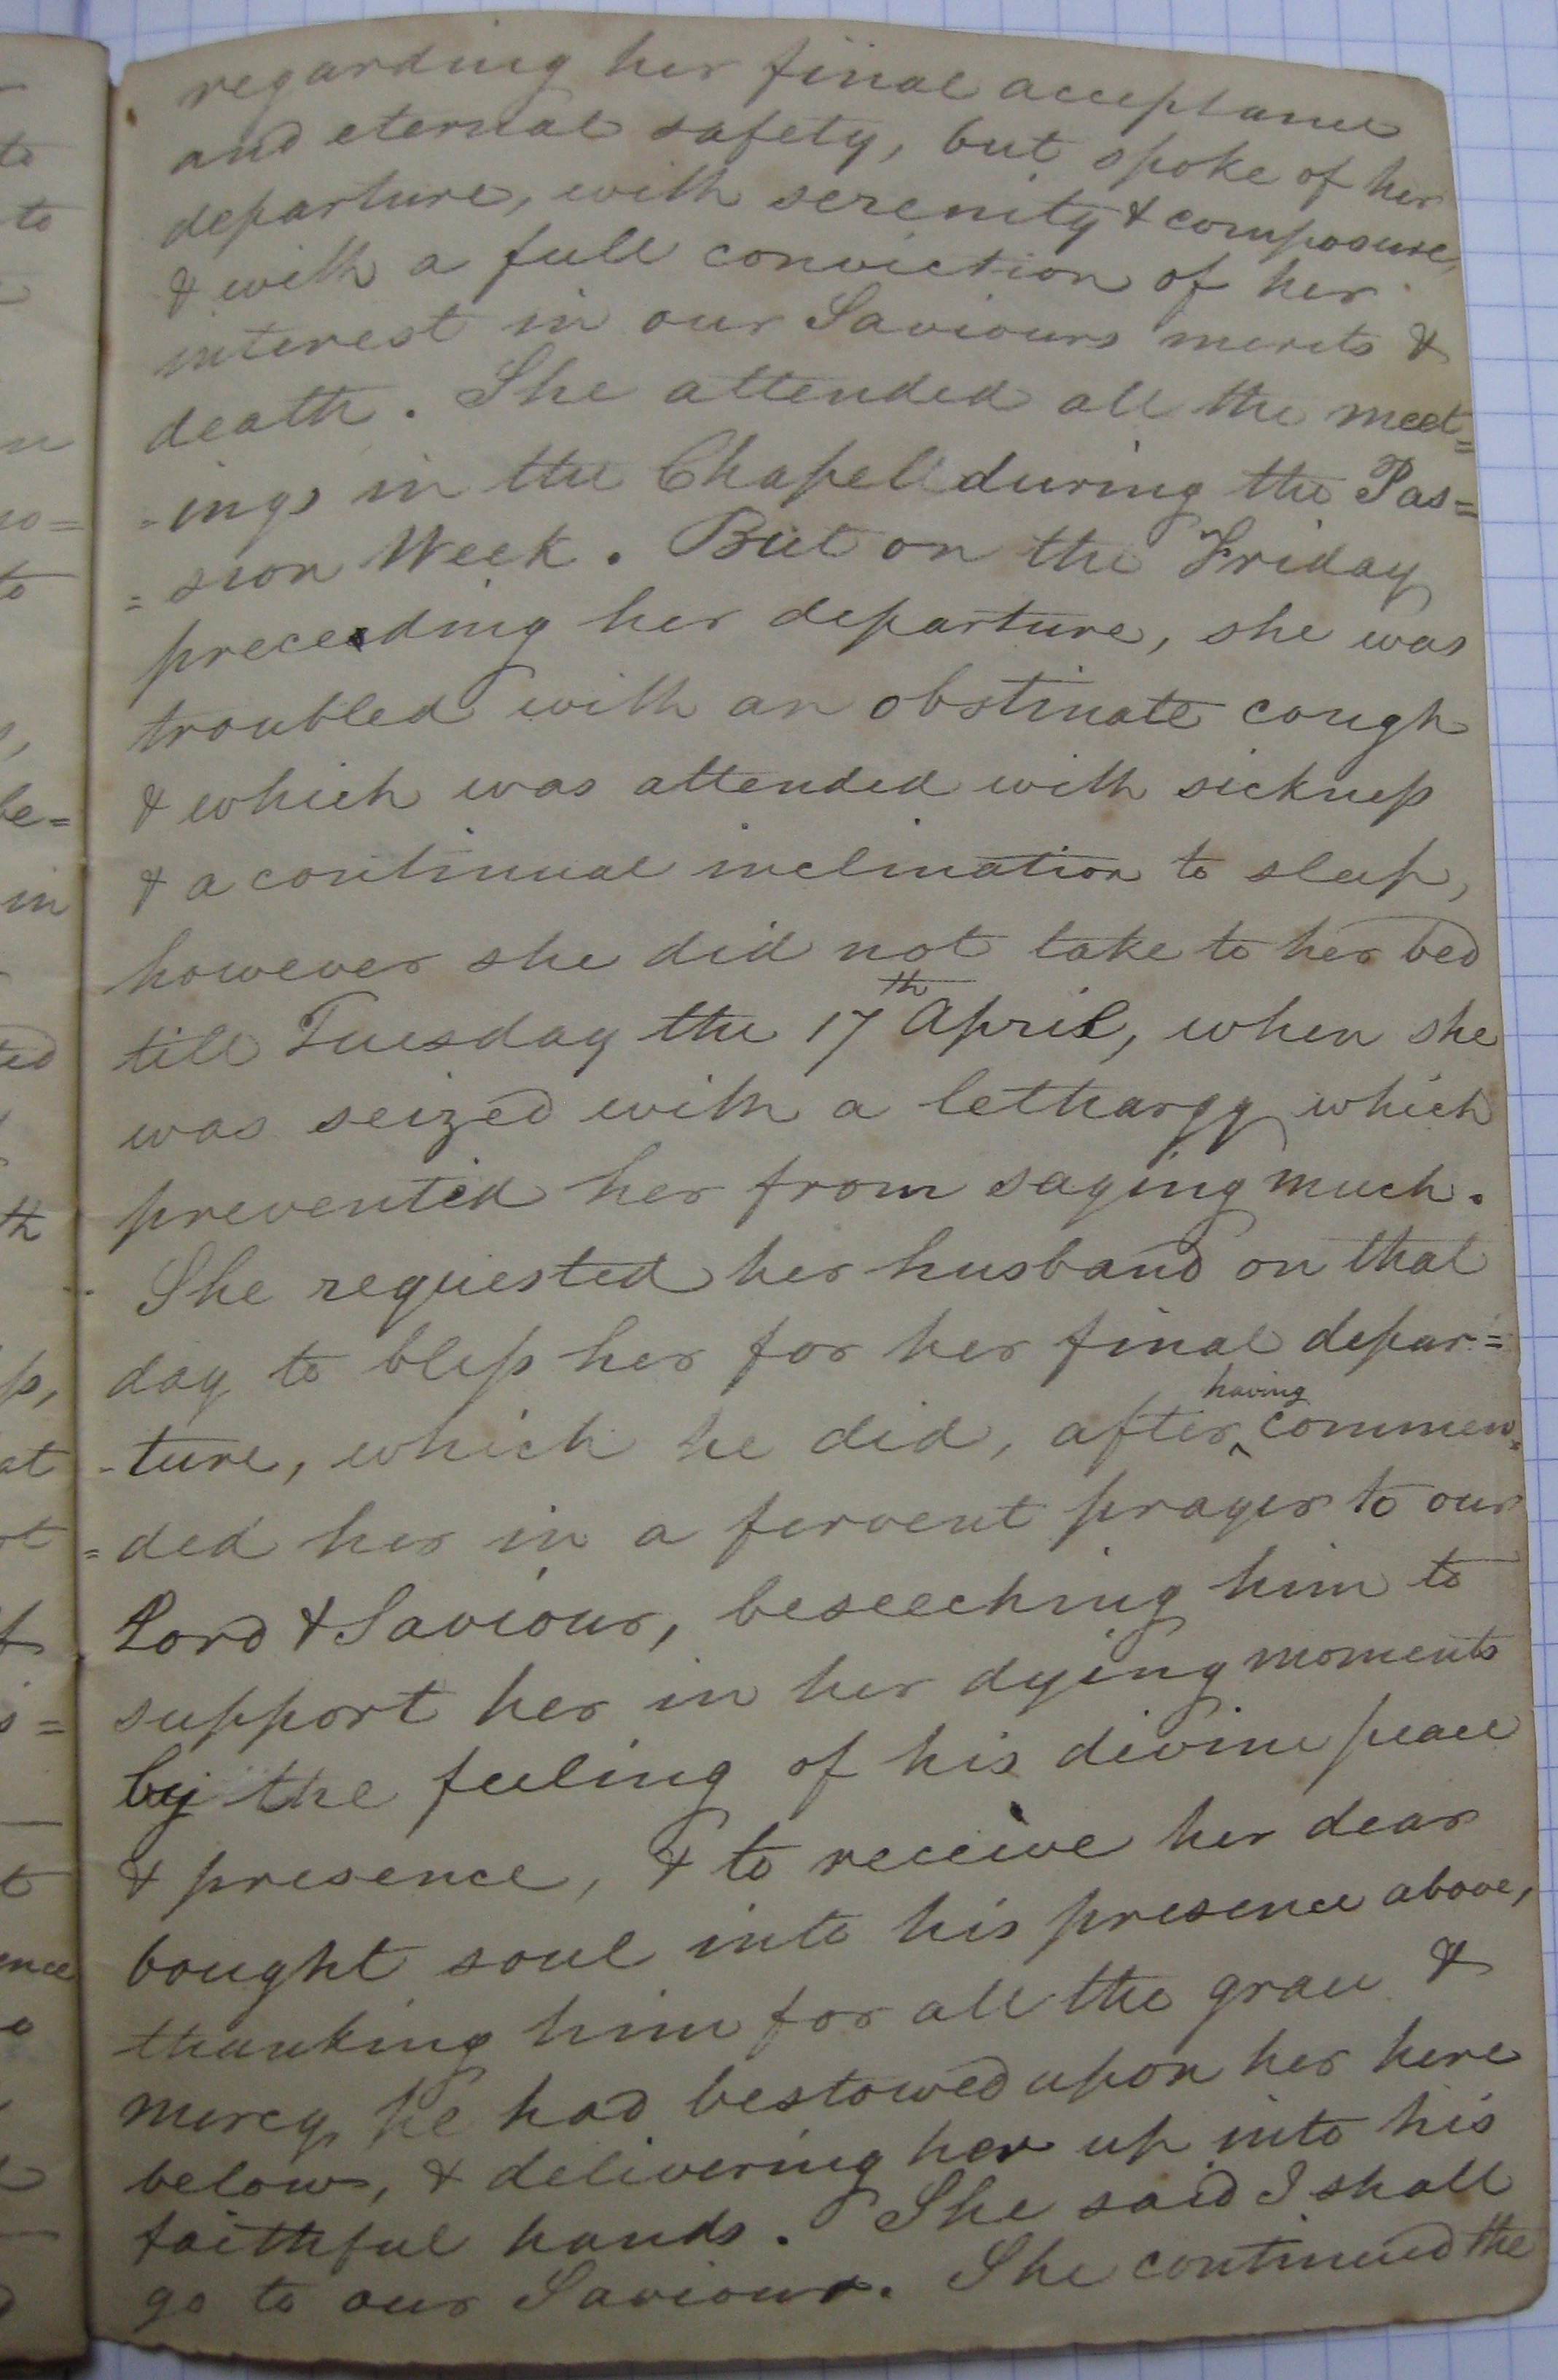 regarding her final acceptance
and eternal safety, but spoke of her
departure, with serenity & composure,
& with a full conviction of her
interest in our Saviours merits &
death. She attended all the meet=
-ings in the Chapel during the Pas=
=sion Week. But on the Friday
preceeding her departure, she was
troubled with an obstinate cough
& which was attended with sickness
& a continual inclination to sleep,
however she did not take to her bed
till Tuesday the 17th April, when she
was seized with a lethargy which
prevented her from saying much.
She requested her husband on that
day to bless her for her final depar=
-ture, which he did, after having commen=
=ded her in a fervent prayer to our
Lord & Saviour, beseeching him to
support her in her dying moments
by the feeling of his divine peace
& presence, & to receive her dear
bought soul into his presence above,
thanking him for all the grace &
mercy he had bestowed upon her here
below, & delivering her up into his
faithful hands. She said I shall
go to our Saviour. She continued the
to
to
no=
to
be=
in
th
at
s=
ence